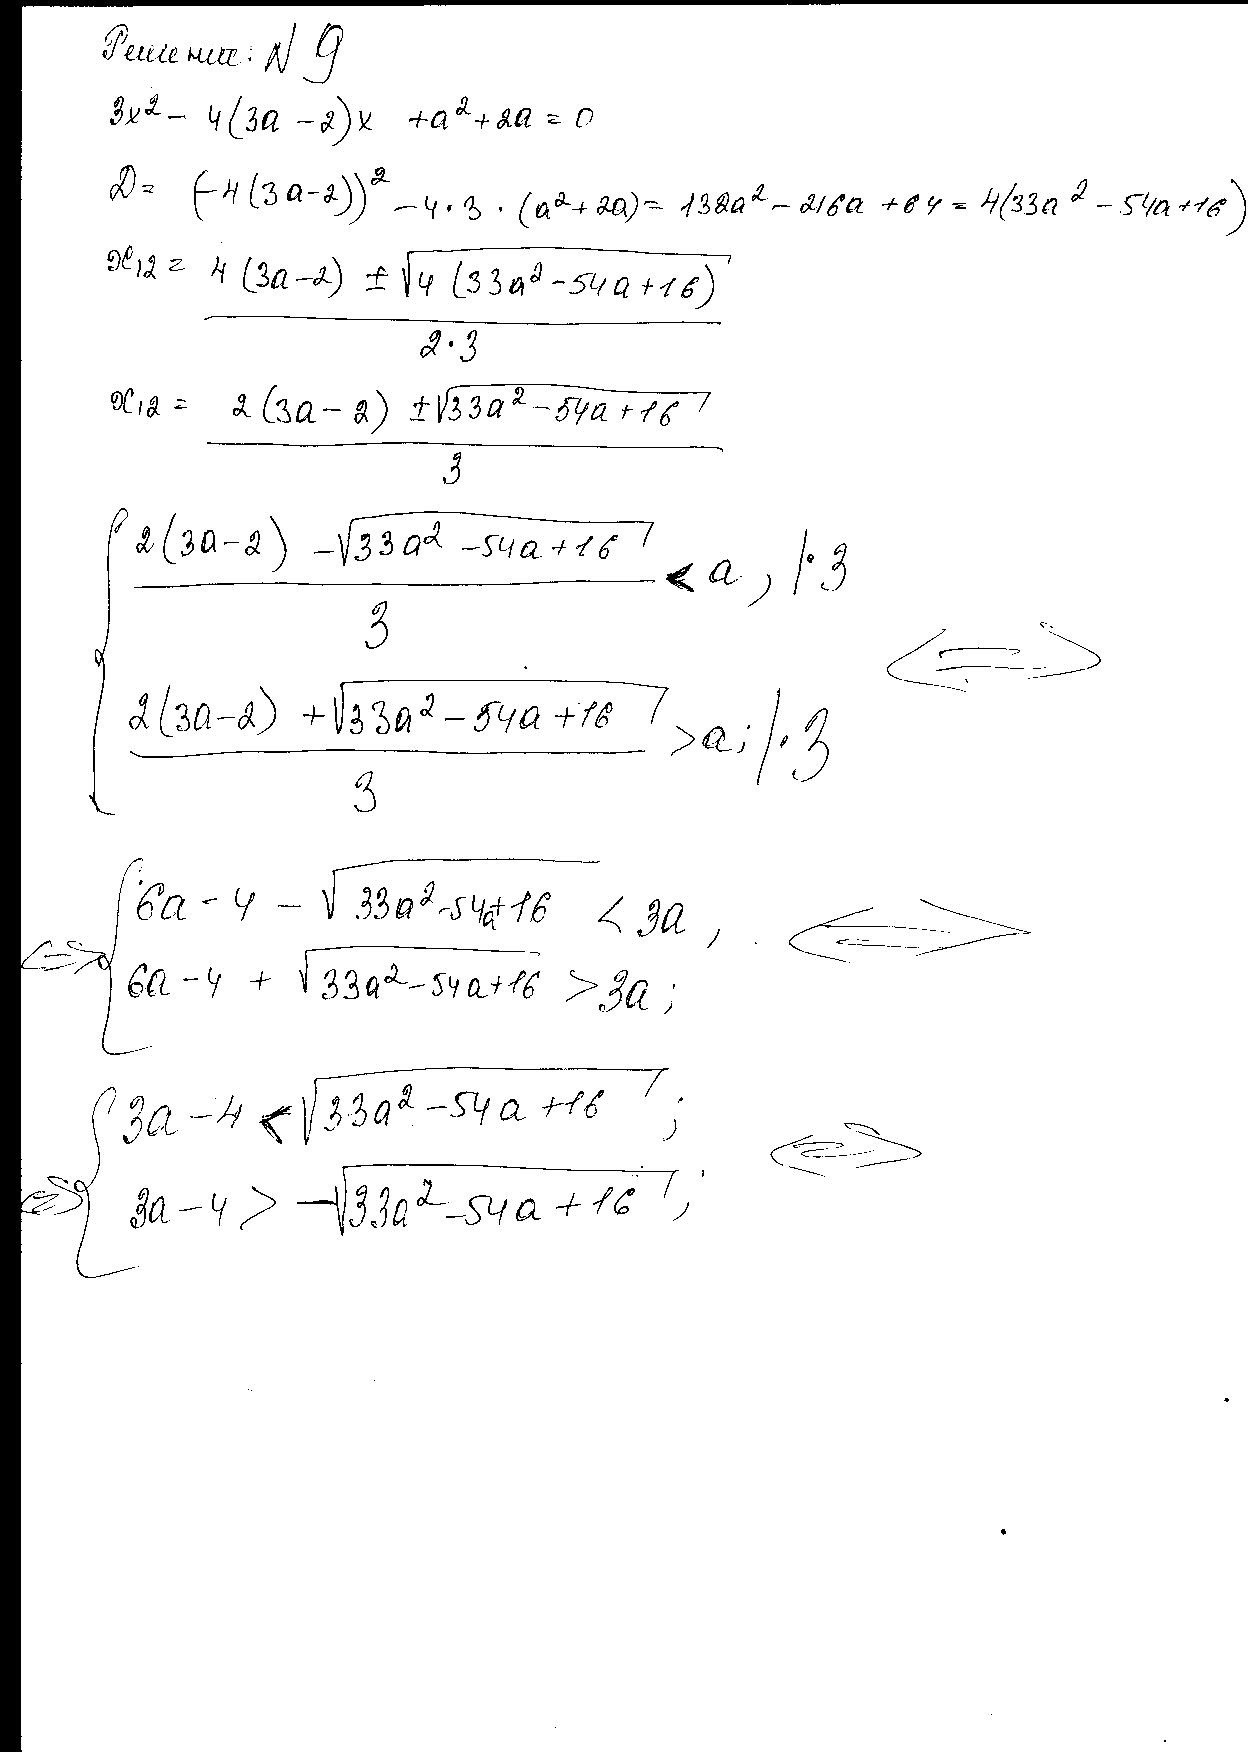 Решение: N 9
3x² - 4(3a - 2)x + a² + 2a = 0
D = (-4(3a-2))² - 4·3·(a²+2a) = 132a² - 216a + 64 = 4(33a² - 54a + 16)
x₁₂ = 4(3a-2) ± √4(33a² - 54a + 16)
2·3
x₁₂ = 2(3a-2) ± √33a² - 54a + 16
3
2(3a-2) - √33a² - 54a + 16 < a, |·3
3
⇔
2(3a-2) + √33a² - 54a + 16 > a; |·3
3
6a - 4 - √33a² - 54a + 16 < 3a, ⇔
⇔ 6a - 4 + √33a² - 54a + 16 > 3a;
3a - 4 < √33a² - 54a + 16; ⇔
⇔ 3a - 4 > -√33a² - 54a + 16;